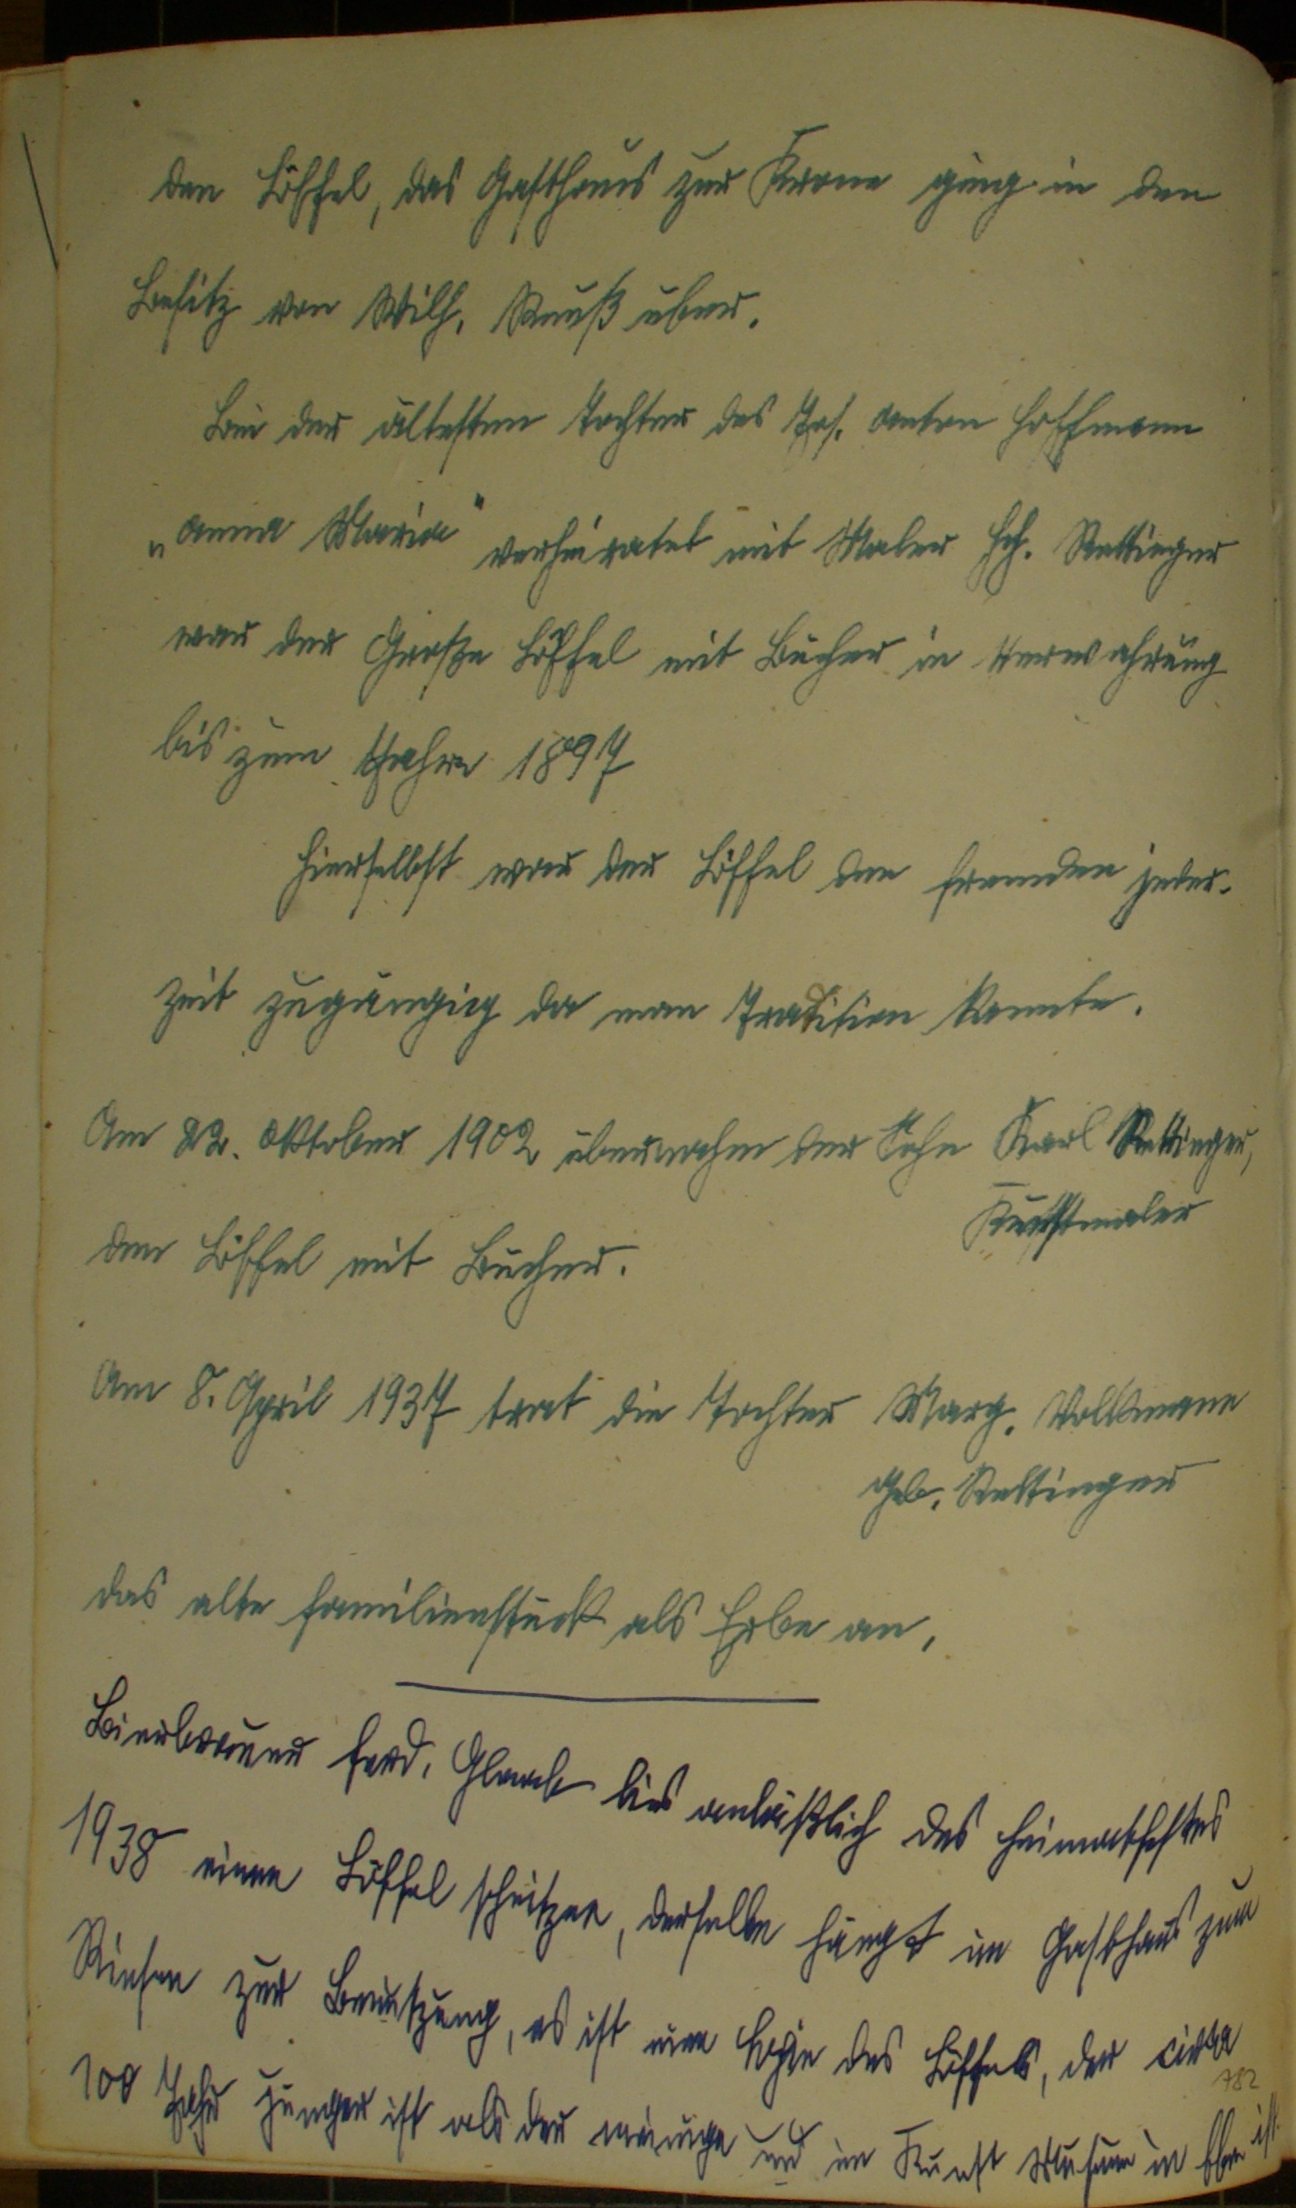 den Löffel, das Gasthaus zur Krone ging in den
Besitz von Wilh. Rauß über.
Bei der ältesten Tochter des Jos. Anton Hoffmann
„Anna Maria" verheiratet mit Maler Hch. Rettinger
war der Große Löffel mit Bücher in Verwahrung
bis zum Jahre 1897
Hierselbst war der Löffel den Fremden jeder-
zeit zugängig da man Tradition kannte.
Am 22. Oktober 1902 übernahm der Sohn Karl Rettinger,
Kunstmaler
den Löffel mit Bücher.
Am 8. April 1937 trat die Tochter Marg. Volkmann
Geb. Rettinger
das alte Familienstück als Erbe an.
Bierbrauer Ferd. Glaab lies anläßlich des Heimatfestes
1938 einen Löffel schnitzen, derselbe hängt im Gasthaus zum
Riesen zur Benutzung, es ist eine Kopie des Löffels, der cirka
100 Jahr jünger ist als der meinige und im Kunst Museum in ist
182